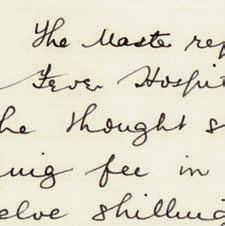 The Master rep
Fever Hospit
he thought s
ing fee in
elve shilling